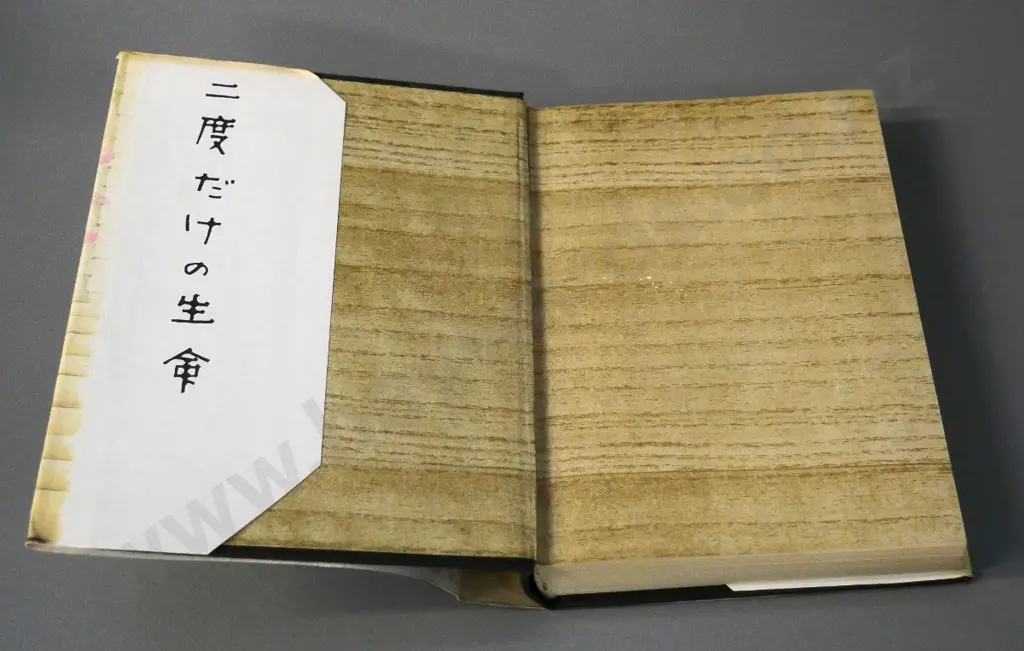 二度だけの生命
www.